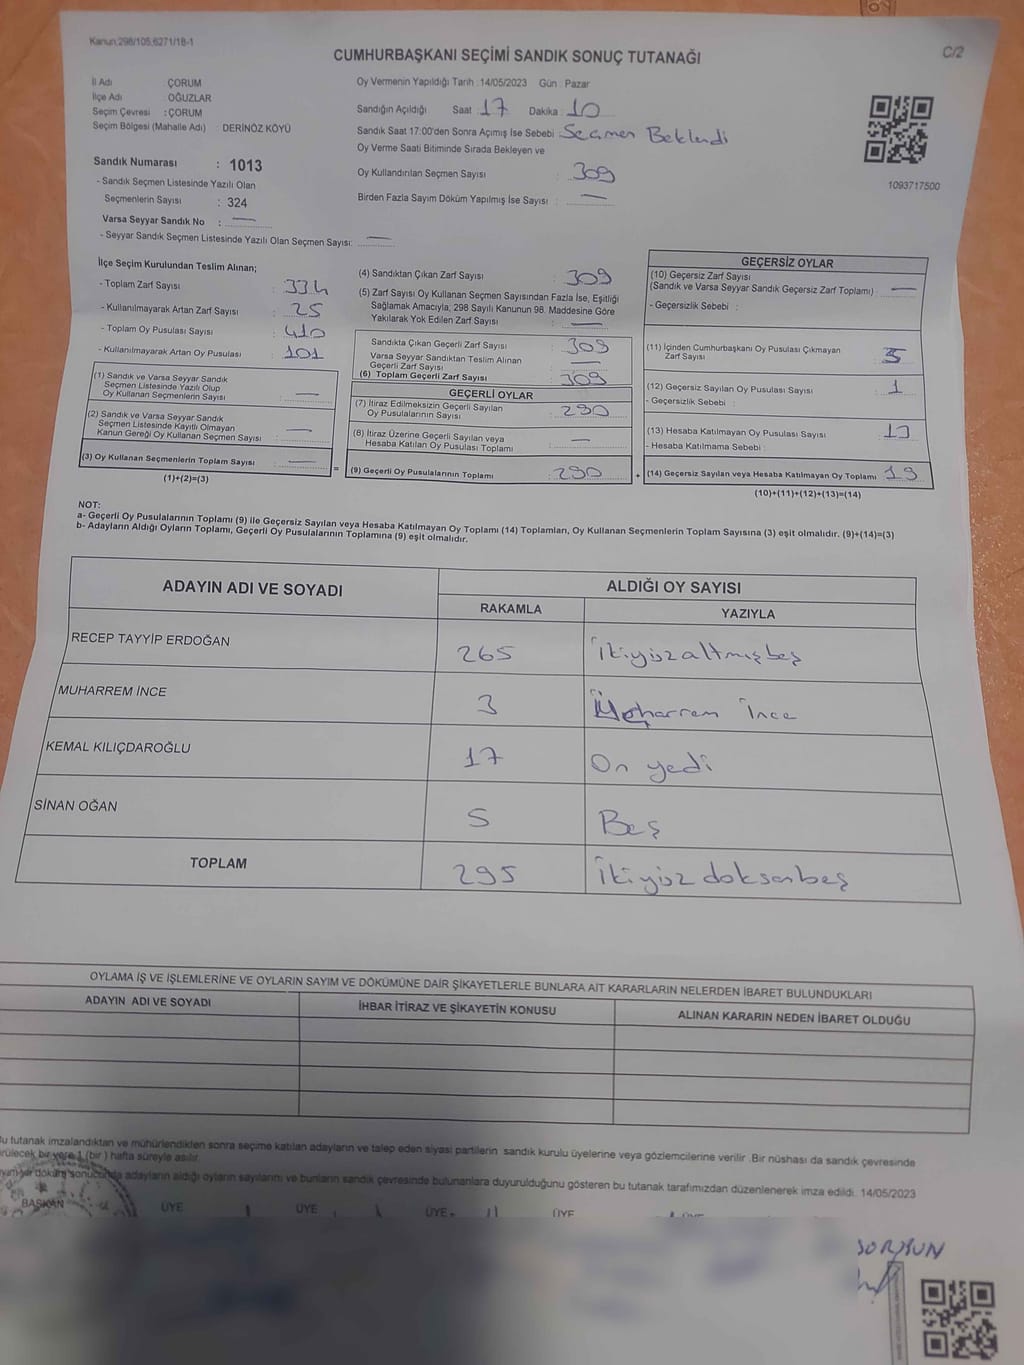 Kanun;298/105,6271/18-1
C/2
CUMHURBAŞKANI SEÇİMİ SANDIK SONUÇ TUTANAĞI
İl Adı ÇORUM
İlçe Adı : OĞUZLAR
Seçim Çevresi : ÇORUM
Seçim Bölgesi (Mahalle Adı) : DERİNÖZ KÖYÜ
Sandık Numarası : 1013
- Sandık Seçmen Listesinde Yazılı Olan
Seçmenlerin Sayısı : 324
Varsa Seyyar Sandık No : —
- Seyyar Sandık Seçmen Listesinde Yazılı Olan Seçmen Sayısı: —
Oy Vermenin Yapıldığı Tarih : 14/05/2023 Gün : Pazar
Sandığın Açıldığı Saat : 17 Dakika : 10
Sandık Saat 17:00'den Sonra Açımış İse Sebebi : Seçmen Beklendi
Oy Verme Saati Bitiminde Sırada Bekleyen ve
Oy Kullandırılan Seçmen Sayısı : 309
Birden Fazla Sayım Döküm Yapılmış İse Sayısı : —
1093717500
İlçe Seçim Kurulundan Teslim Alınan;
- Toplam Zarf Sayısı : 334
- Kullanılmayarak Artan Zarf Sayısı : 25
- Toplam Oy Pusulası Sayısı : 410
- Kullanılmayarak Artan Oy Pusulası : 101
(1) Sandık ve Varsa Seyyar Sandık
Seçmen Listesinde Yazılı Olup
Oy Kullanan Seçmenlerin Sayısı : —
(2) Sandık ve Varsa Seyyar Sandık
Seçmen Listesinde Kayıtlı Olmayan
Kanun Gereği Oy Kullanan Seçmen Sayısı : —
(3) Oy Kullanan Seçmenlerin Toplam Sayısı : —
(1)+(2)=(3)
=
(4) Sandıktan Çıkan Zarf Sayısı : 309
(5) Zarf Sayısı Oy Kullanan Seçmen Sayısından Fazla İse, Eşitliği
Sağlamak Amacıyla, 298 Sayılı Kanunun 98. Maddesine Göre
Yakılarak Yok Edilen Zarf Sayısı : —
Sandıkta Çıkan Geçerli Zarf Sayısı : 309
Varsa Seyyar Sandıktan Teslim Alınan
Geçerli Zarf Sayısı : —
(6) Toplam Geçerli Zarf Sayısı : 309
GEÇERLİ OYLAR
(7) İtiraz Edilmeksizin Geçerli Sayılan
Oy Pusulalarının Sayısı : 290
(8) İtiraz Üzerine Geçerli Sayılan veya
Hesaba Katılan Oy Pusulaları Toplamı : —
(9) Geçerli Oy Pusulalarının Toplamı : 290
+
GEÇERSİZ OYLAR
(10) Geçersiz Zarf Sayısı
(Sandık ve Varsa Seyyar Sandık Geçersiz Zarf Toplamı) : —
- Geçersizlik Sebebi :
(11) İçinden Cumhurbaşkanı Oy Pusulası Çıkmayan
Zarf Sayısı : 5
(12) Geçersiz Sayılan Oy Pusulası Sayısı : 1
- Geçersizlik Sebebi :
(13) Hesaba Katılmayan Oy Pusulası Sayısı : 13
- Hesaba Katılmama Sebebi :
(14) Geçersiz Sayılan veya Hesaba Katılmayan Oy Toplamı : 19
(10)+(11)+(12)+(13)=(14)
NOT:
a- Geçerli Oy Pusulalarının Toplamı (9) ile Geçersiz Sayılan veya Hesaba Katılmayan Oy Toplamı (14) Toplamları, Oy Kullanan Seçmenlerin Toplam Sayısına (3) eşit olmalıdır. (9)+(14)=(3)
b- Adayların Aldığı Oyların Toplamı, Geçerli Oy Pusulalarının Toplamına (9) eşit olmalıdır.
ADAYIN ADI VE SOYADI
ALDIĞI OY SAYISI
RAKAMLA YAZIYLA
RECEP TAYYİP ERDOĞAN 265 ikiyüzaltmışbeş
MUHARREM İNCE 3 Muharrem İnce
KEMAL KILIÇDAROĞLU 17 On yedi
SİNAN OĞAN 5 Beş
TOPLAM 295 ikiyüzdoksanbeş
OYLAMA İŞ VE İŞLEMLERİNE VE OYLARIN SAYIM VE DÖKÜMÜNE DAİR ŞİKAYETLERLE BUNLARA AİT KARARLARIN NELERDEN İBARET BULUNDUKLARI
ADAYIN ADI VE SOYADI İHBAR İTİRAZ VE ŞİKAYETİN KONUSU ALINAN KARARIN NEDEN İBARET OLDUĞU
Bu tutanak imzalandıktan ve mühürlendikten sonra seçime katılan adayların ve talep eden siyasi partilerin sandık kurulu üyelerine veya gözlemcilerine verilir .Bir nüshası da sandık çevresinde
görülecek bir yere 1 (bir ) hafta süreyle asılır.
döküm sonucunda adayların aldığı oyların sayılarını ve bunların sandık çevresinde bulunanlara duyurulduğunu gösteren bu tutanak tarafımızdan düzenlenerek imza edildi. 14/05/2023
BAŞKAN ÜYE ÜYE ÜYE ÜYE ÜYE